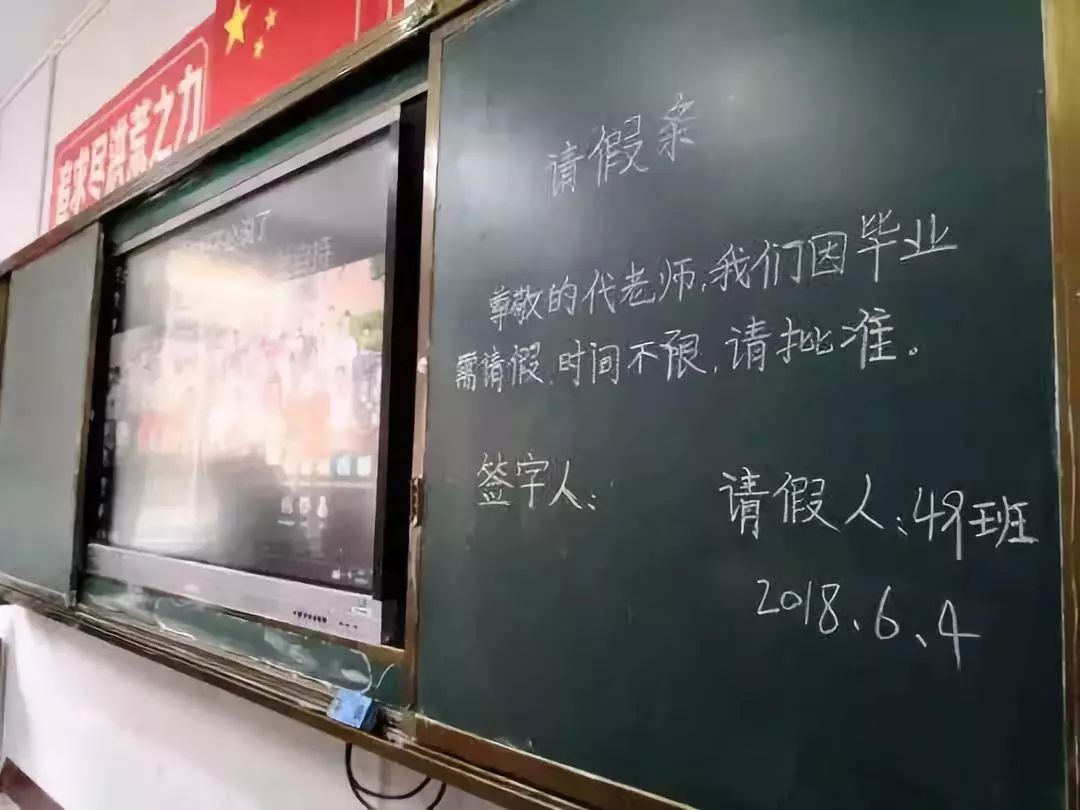 尽洪荒之力
请假条
尊敬的代老师,我们因毕业
需请假,时间不限,请批准。
签字人:
请假人:49班
2018、6、4